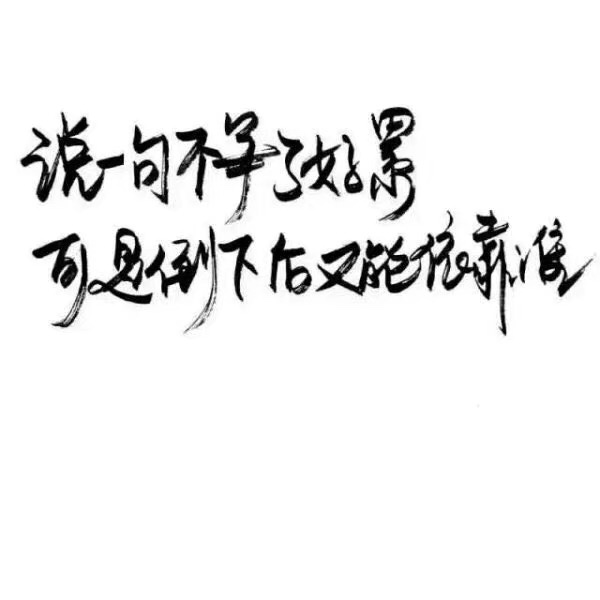 说一句不算了好累
可是倒下后又能依靠谁